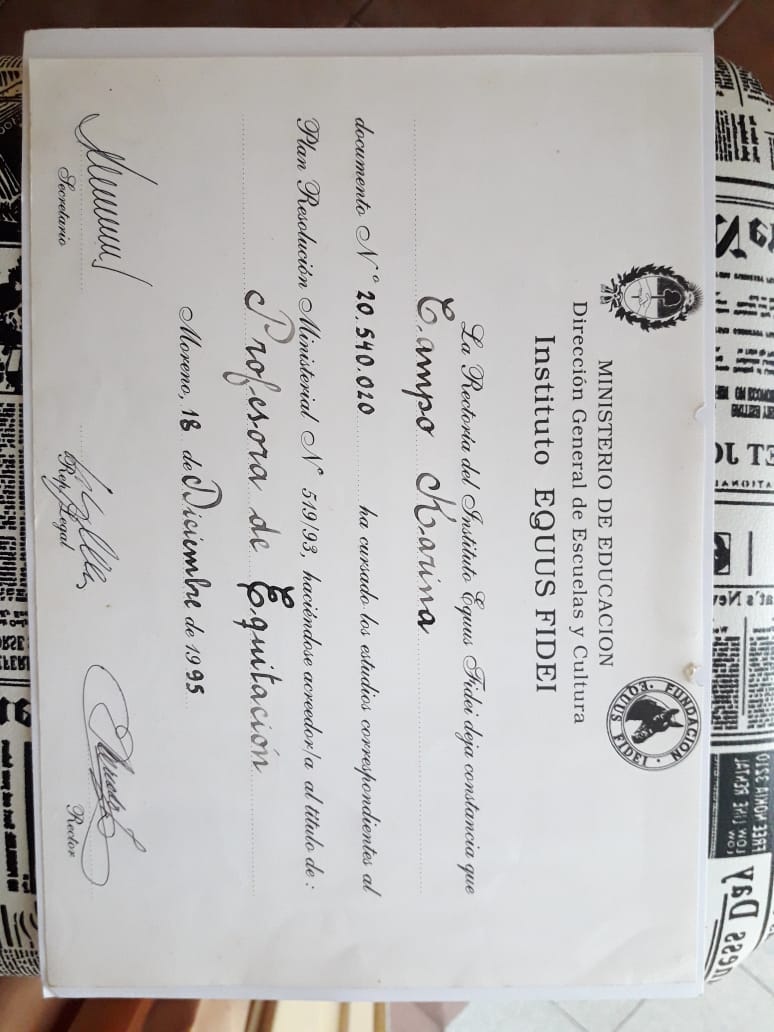 FREE NOKIA 3210
LOW LINE RENTAL
LOW
ness Day
FUNDACION
EQUUS FIDEI
MINISTERIO DE EDUCACION
Dirección General de Escuelas y Cultura
Instituto EQUUS FIDEI
La Rectoría del Instituto Equus Fidei deja constancia que
Campo Karina
documento Nº 20.540.020 ha cursado los estudios correspondientes al
Plan Resolución Ministerial Nº 519/93, haciéndose acreedor/a al título de:
Profesora de Equitación
Moreno, 18 de Diciembre de 1995
Secretario
Rep. Legal
Rector